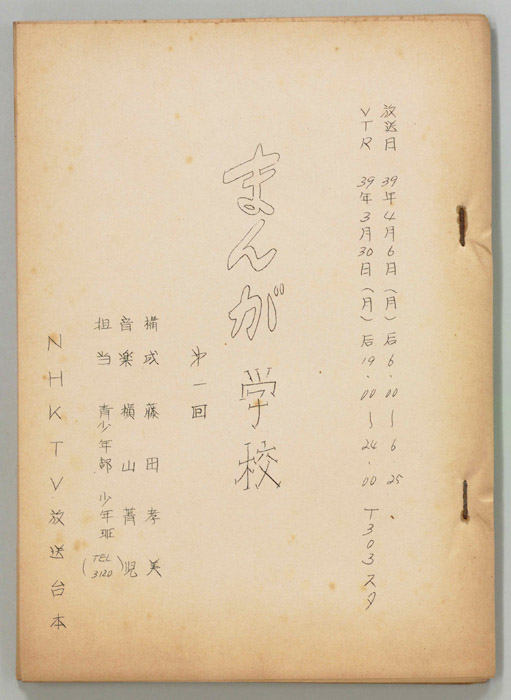 放送日 39年4月6日(月)后6.00〜6.25
VTR 39年3月30日(月)后19.00〜24.00 T303スタ
まんが学校
第一回
構成 藤田孝美
音楽 横山菁児
担当 青少年部少年班(TEL 3120)
NHKTV放送台本